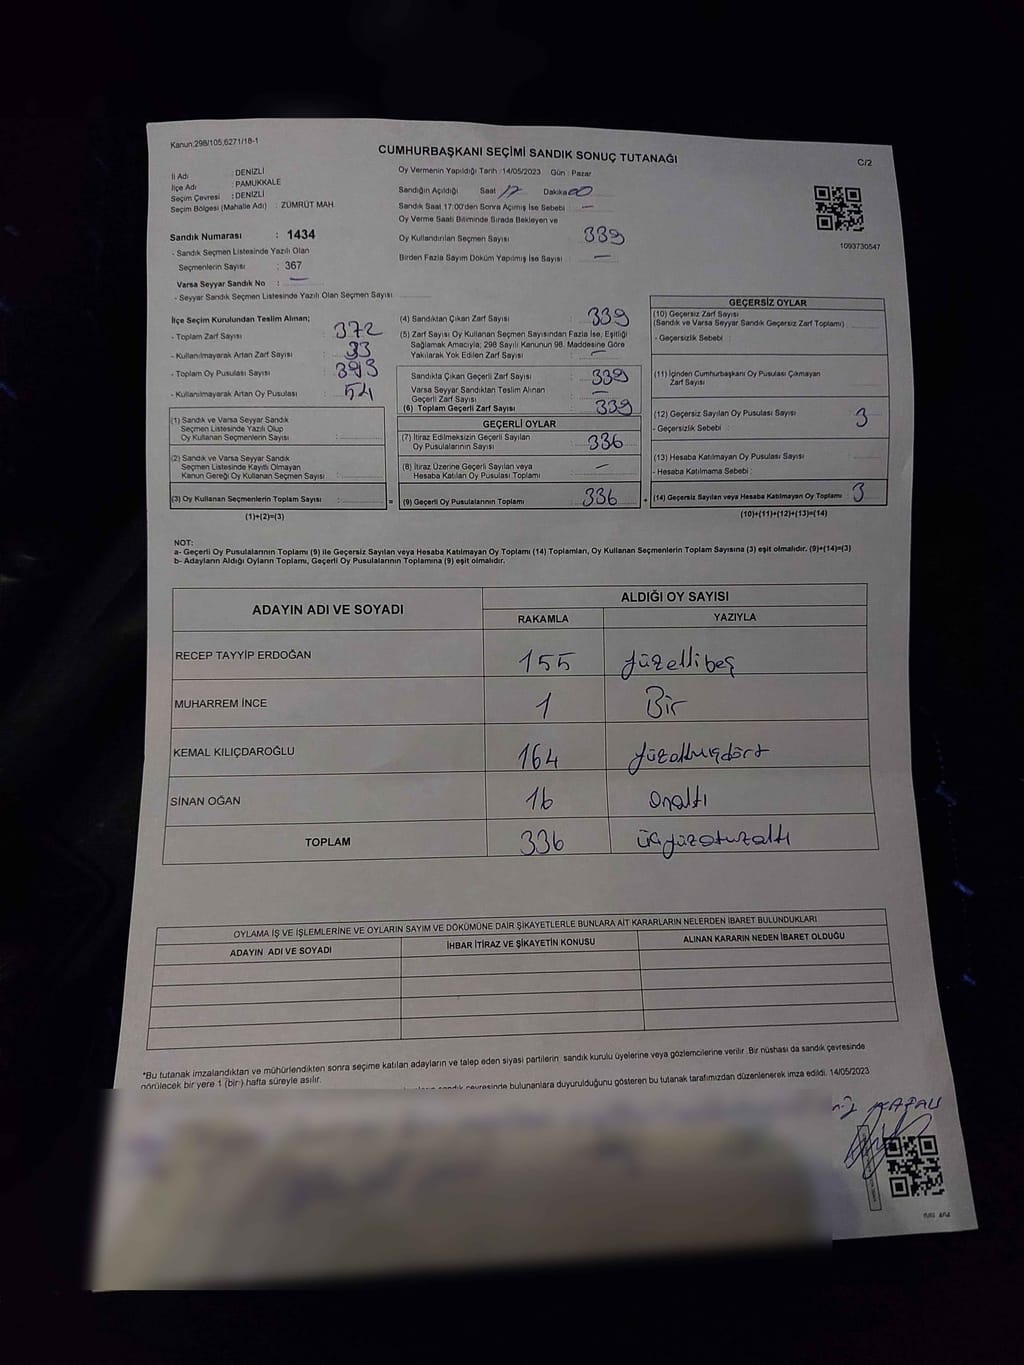 Kanun:298/105,6271/18-1
CUMHURBAŞKANI SEÇİMİ SANDIK SONUÇ TUTANAĞI
C/2
İl Adı : DENİZLİ
İlçe Adı : PAMUKKALE
Seçim Çevresi : DENİZLİ
Seçim Bölgesi (Mahalle Adı) : ZÜMRÜT MAH.
Sandık Numarası : 1434
- Sandık Seçmen Listesinde Yazılı Olan
Seçmenlerin Sayısı : 367
Varsa Seyyar Sandık No : —
- Seyyar Sandık Seçmen Listesinde Yazılı Olan Seçmen Sayısı
Oy Vermenin Yapıldığı Tarih :14/05/2023 Gün : Pazar
Sandığın Açıldığı Saat 17 Dakika 00
Sandık Saat 17:00'den Sonra Açılmış İse Sebebi : —
Oy Verme Saati Bitiminde Sırada Bekleyen ve
Oy Kullandırılan Seçmen Sayısı 339
Birden Fazla Sayım Döküm Yapılmış İse Sayısı : —
1093730547
İlçe Seçim Kurulundan Teslim Alınan;
- Toplam Zarf Sayısı : 372
- Kullanılmayarak Artan Zarf Sayısı : 33
- Toplam Oy Pusulası Sayısı : 393
- Kullanılmayarak Artan Oy Pusulası : 54
(1) Sandık ve Varsa Seyyar Sandık
Seçmen Listesinde Yazılı Olup
Oy Kullanan Seçmenlerin Sayısı :
(2) Sandık ve Varsa Seyyar Sandık
Seçmen Listesinde Kayıtlı Olmayan
Kanun Gereği Oy Kullanan Seçmen Sayısı :
(3) Oy Kullanan Seçmenlerin Toplam Sayısı : =
(1)+(2)=(3)
(4) Sandıktan Çıkan Zarf Sayısı : 339
(5) Zarf Sayısı Oy Kullanan Seçmen Sayısından Fazla İse, Eşitliği
Sağlamak Amacıyla; 298 Sayılı Kanunun 98. Maddesine Göre
Yakılarak Yok Edilen Zarf Sayısı : —
Sandıkta Çıkan Geçerli Zarf Sayısı : 339
Varsa Seyyar Sandıktan Teslim Alınan
Geçerli Zarf Sayısı : —
(6) Toplam Geçerli Zarf Sayısı : 339
GEÇERLİ OYLAR
(7) İtiraz Edilmeksizin Geçerli Sayılan
Oy Pusulalarının Sayısı : 336
(8) İtiraz Üzerine Geçerli Sayılan veya
Hesaba Katılan Oy Pusulası Toplamı : —
(9) Geçerli Oy Pusulalarının Toplamı : 336 +
GEÇERSİZ OYLAR
(10) Geçersiz Zarf Sayısı
(Sandık ve Varsa Seyyar Sandık Geçersiz Zarf Toplamı)
- Geçersizlik Sebebi :
(11) İçinden Cumhurbaşkanı Oy Pusulası Çıkmayan
Zarf Sayısı
(12) Geçersiz Sayılan Oy Pusulası Sayısı : 3
- Geçersizlik Sebebi :
(13) Hesaba Katılmayan Oy Pusulası Sayısı :
- Hesaba Katılmama Sebebi :
(14) Geçersiz Sayılan veya Hesaba Katılmayan Oy Toplamı : 3
(10)+(11)+(12)+(13)=(14)
NOT:
a- Geçerli Oy Pusulalarının Toplamı (9) ile Geçersiz Sayılan veya Hesaba Katılmayan Oy Toplamı (14) Toplamları, Oy Kullanan Seçmenlerin Toplam Sayısına (3) eşit olmalıdır. (9)+(14)=(3)
b- Adayların Aldığı Oyların Toplamı, Geçerli Oy Pusulalarının Toplamına (9) eşit olmalıdır.
ADAYIN ADI VE SOYADI
ALDIĞI OY SAYISI
RAKAMLA YAZIYLA
RECEP TAYYİP ERDOĞAN 155 yüzellibeş
MUHARREM İNCE 1 Bir
KEMAL KILIÇDAROĞLU 164 yüzaltmışdört
SİNAN OĞAN 16 onaltı
TOPLAM 336 üçyüzotuzaltı
OYLAMA İŞ VE İŞLEMLERİNE VE OYLARIN SAYIM VE DÖKÜMÜNE DAİR ŞİKAYETLERLE BUNLARA AİT KARARLARIN NELERDEN İBARET BULUNDUKLARI
ADAYIN ADI VE SOYADI İHBAR İTİRAZ VE ŞİKAYETİN KONUSU ALINAN KARARIN NEDEN İBARET OLDUĞU
*Bu tutanak imzalandıktan ve mühürlendikten sonra seçime katılan adayların ve talep eden siyasi partilerin sandık kurulu üyelerine veya gözlemcilerine verilir .Bir nüshası da sandık çevresinde
görülecek bir yere 1 (bir) hafta süreyle asılır.
sandık çevresinde bulunanlara duyurulduğunu gösteren bu tutanak tarafımızdan düzenlenerek imza edildi. 14/05/2023